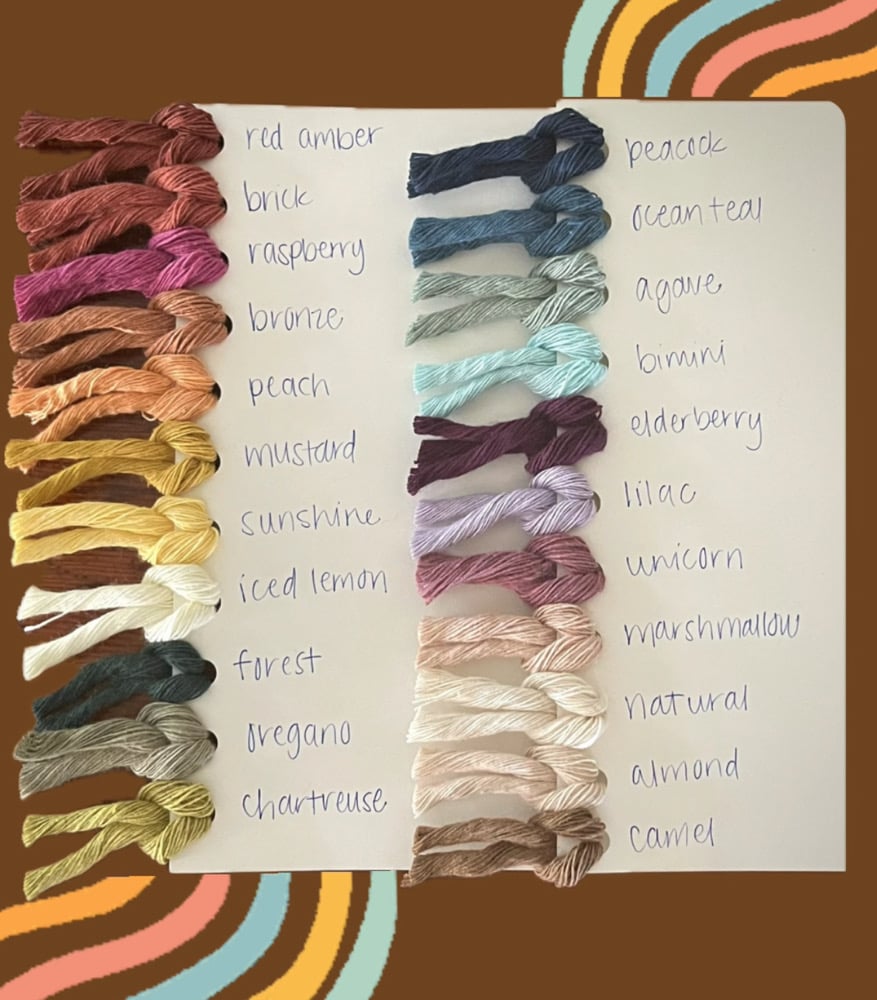 red amber
brick
raspberry
bronze
peach
mustard
sunshine
iced lemon
forest
oregano
chartreuse
peacock
ocean teal
agave
bimini
elderberry
lilac
unicorn
marshmallow
natural
almond
camel